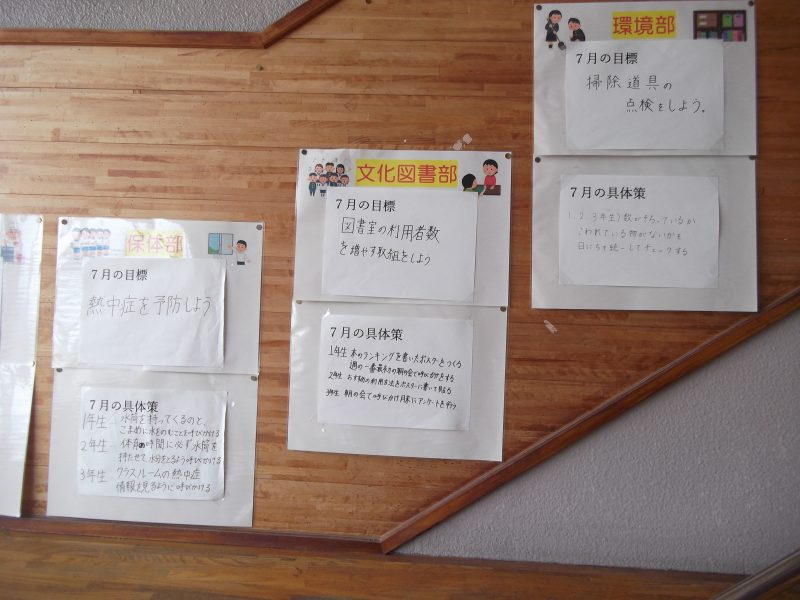 保体部
7月の目標
熱中症を予防しよう
7月の具体策
1年生 水筒を持ってくるのと、
こまめに水をのむことを呼びかける
2年生 体育の時間に必ず水筒を
持たせて、水分をとるよう呼びかける
3年生 クラスルームの熱中症
情報を見るように呼びかける
文化図書部
7月の目標
図書室の利用者数
を増やす取組をしよう
7月の具体策
1年生 本のランキングを書いたポスターをつくる
週の一番最初の朝の会で呼びかけをする
2年生 の利用方法をポスターに書いて貼る
3年生 朝の会で呼びかけ月末にアンケートを行う
環境部
7月の目標
掃除道具の
点検をしよう。
7月の具体策
1.2.3年生)数がそろっているか
こわれている物がないかを
日にちを統一してチェックする